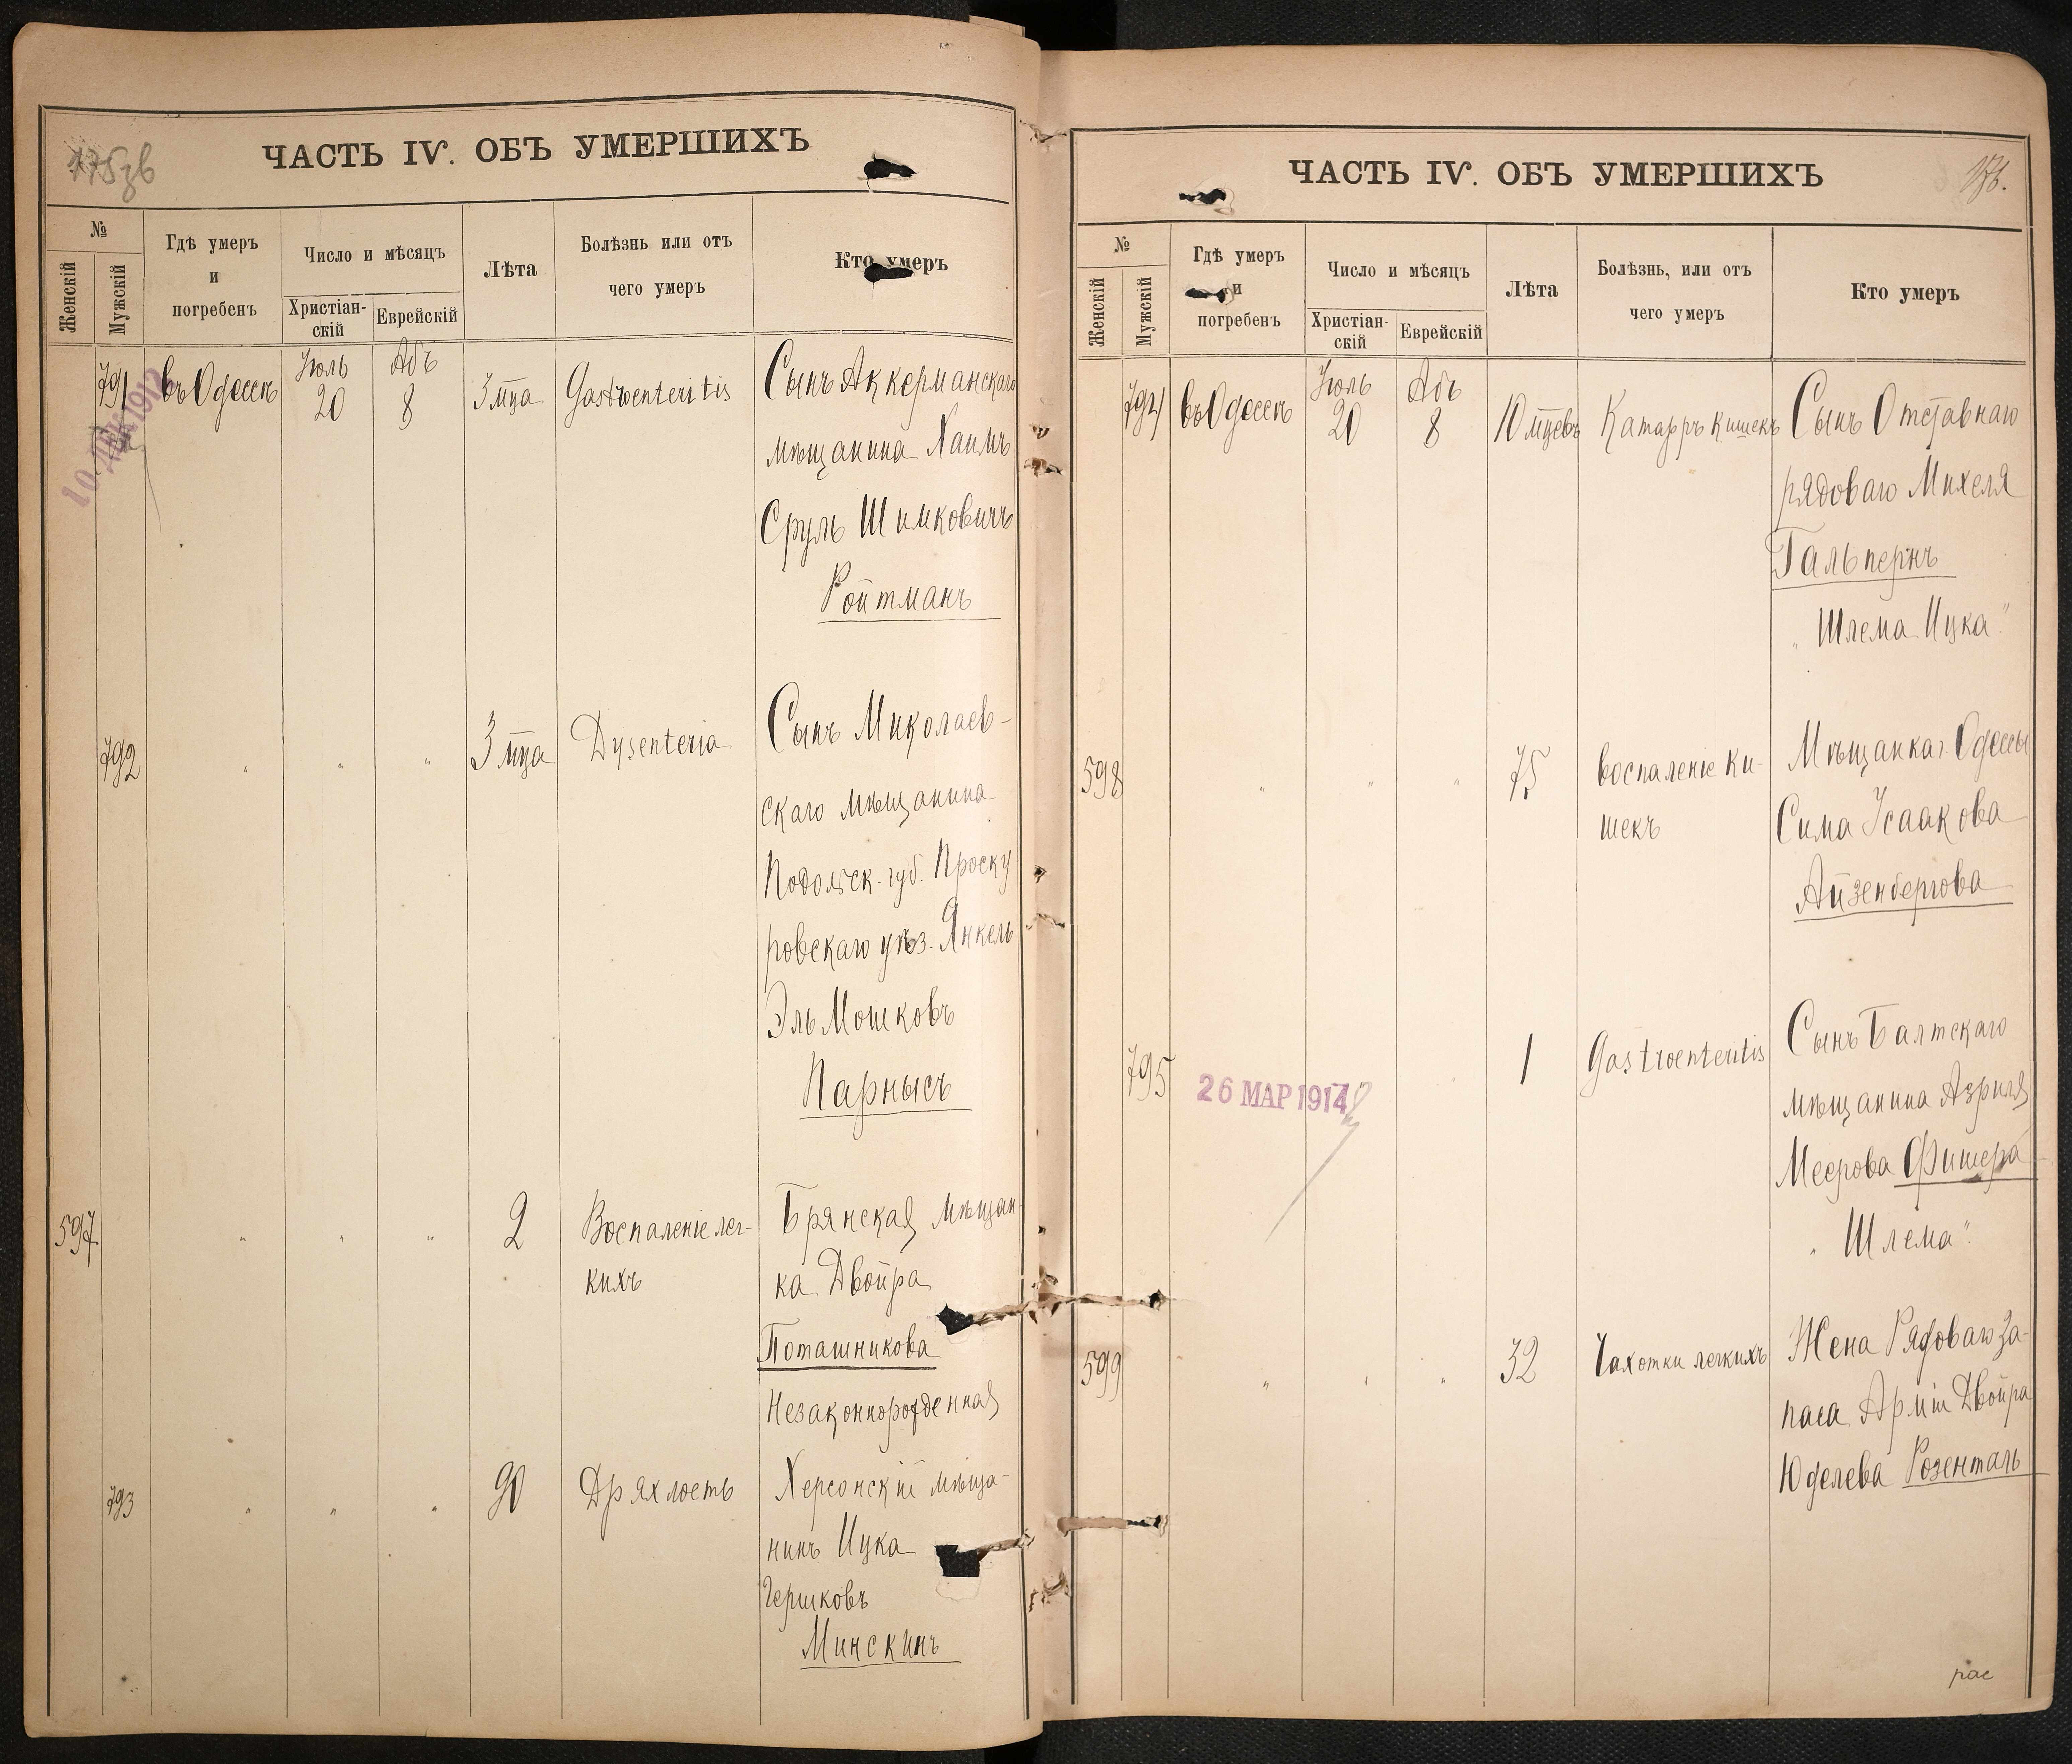 175зв
ЧАСТЬ IV. ОБЪ УМЕРШИХЪ
№
Женскій
Мужскій
Гдѣ умеръ
и
погребенъ
Число и мѣсяцъ
Христіан-
скій
Еврейскій
Лѣта
Болѣзнь или отъ
чего умеръ
Кто умеръ
791
въ Одессѣ
Іюль
20
Абъ
8
3 мца
Gastroenteritis
Сынъ Аккерманскаго
мѣщанина Хаимъ
Сруль Шимковичъ
Ройтманъ
10 ДЕК 1912
792
" " "
3 мца
Dysenteria
Сынъ Николаев-
скаго мѣщанина
Подольск. губ. Проску
ровскаго уѣз. Янкель
Эль Мошковъ
Парнысъ
597
" " "
2
Воспаленіе лег-
кихъ
Брянская мѣщан-
ка Двойра
Поташникова
Незаконнорожденная
793
" " "
90
Дряхлость
Херсонскій мѣща-
нинъ Ицка
Гершковъ
Минскинъ
ЧАСТЬ IV. ОБЪ УМЕРШИХЪ
176.
№
Женскій
Мужскій
Гдѣ умеръ
и
погребенъ
Число и мѣсяцъ
Христіан-
скій
Еврейскій
Лѣта
Болѣзнь, или отъ
чего умеръ
Кто умеръ
794
въ Одессѣ
Іюль
20
Абъ
8
10 мцевъ
Катарръ кишекъ
Сынъ Отставнаго
рядоваго Михеля
Гальпернъ
"Шлема Ицка"
598
" " "
75
воспаленіе ки-
шекъ
Мѣщанка г. Одессы
Сима Исаакова
Айзенбергова
795
26 МАР 1914
1
Gastroenteritis
Сынъ Балтскаго
мѣщанина Азриля
Меерова Фишера
"Шлема"
599
" " "
32
Чахотки легкихъ
Жена Рядоваго За-
паса Арміи Двойра
Юделева Розенталь
рас